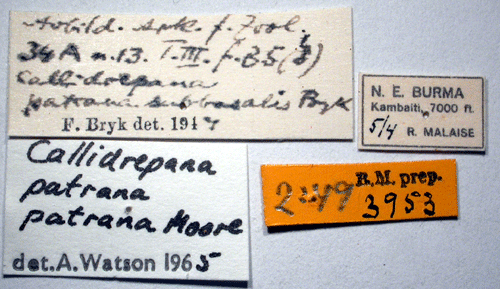 Avbild. Ark. f. Zool.
34A n. 13. T. III. f. B5 (8)
Callidrepana
patrana subbasalis Bryk
F. Bryk det. 1947
N. E. BURMA
Kambaiti, 7000 ft.
5/4 R. MALAISE
Callidrepana
patrana
patrana Moore
det. A. Watson 1965
R.M. prep.
3953